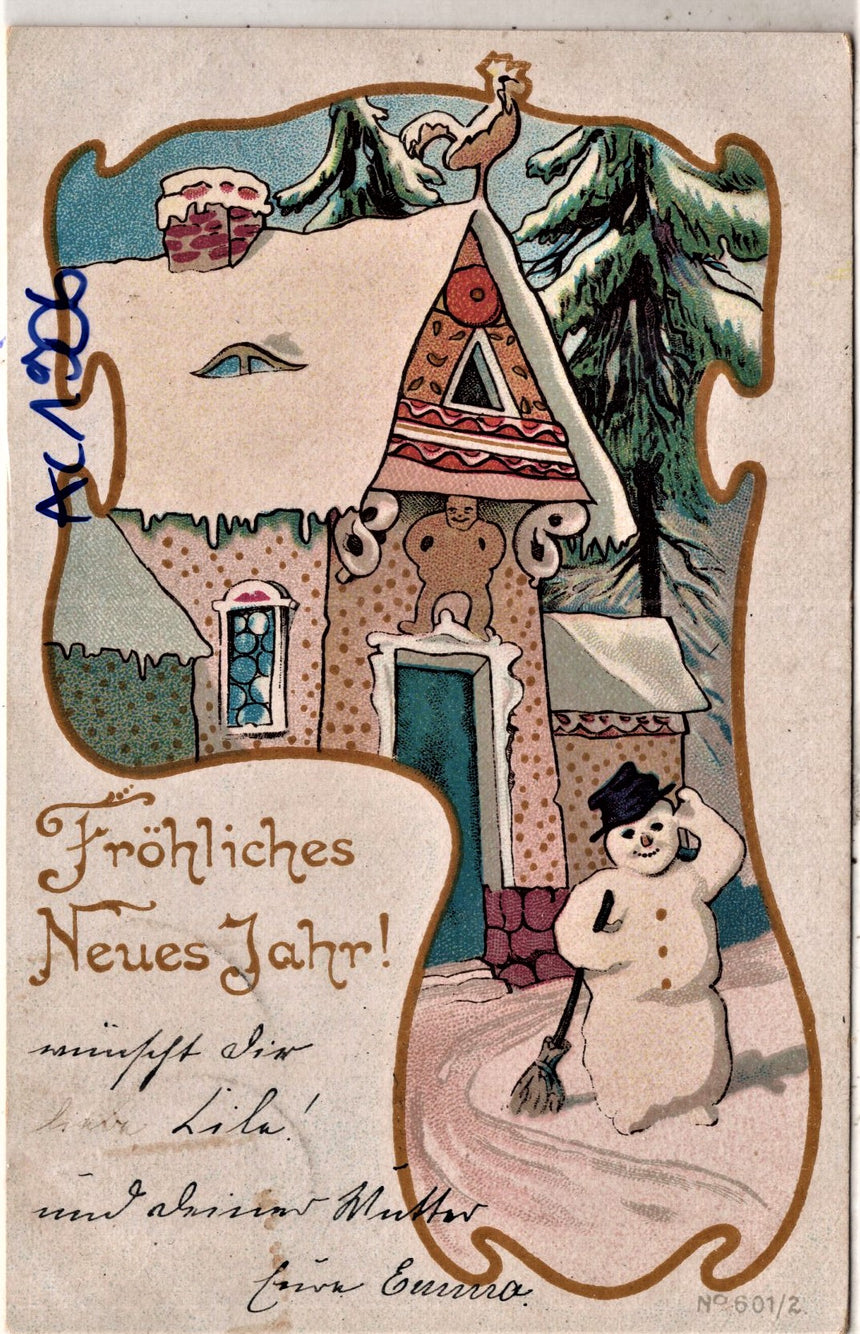 AC/1906
Fröhliches
Neues Jahr!
wünscht Dir
liebe Lila!
und deiner Mutter
Eure Emma.
Nº 601/2.